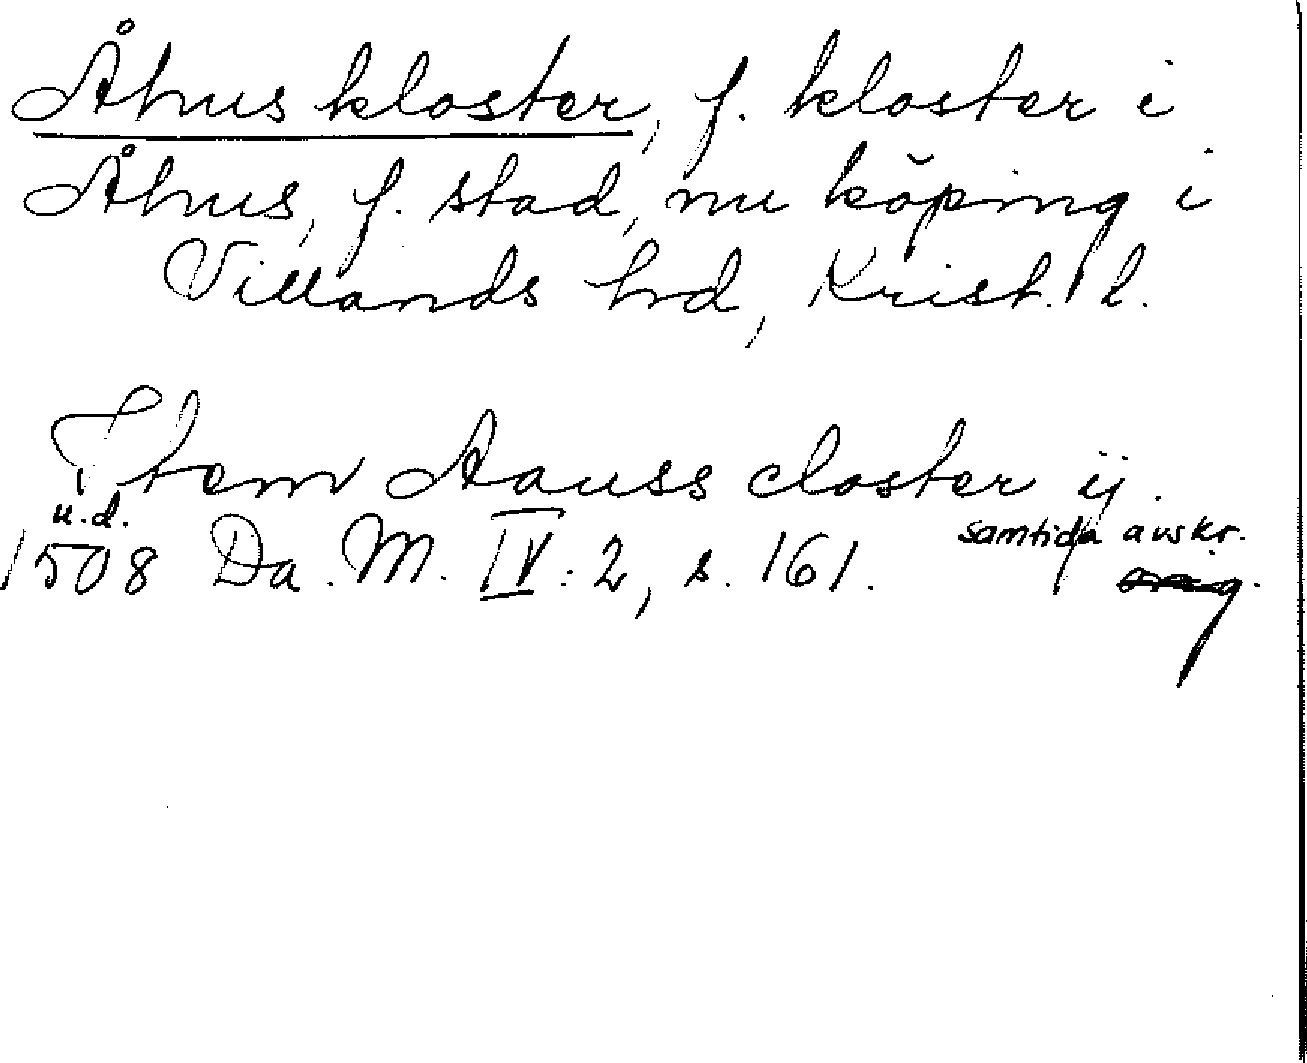 Åhus kloster, f. kloster i
Åhus, f. stad, nu köping i
Villands hd, Krist. l.
Item Aauss closter ij.
u.d.
samtida avskr.
1508 Da. M. IV: 2, s. 161. orig.